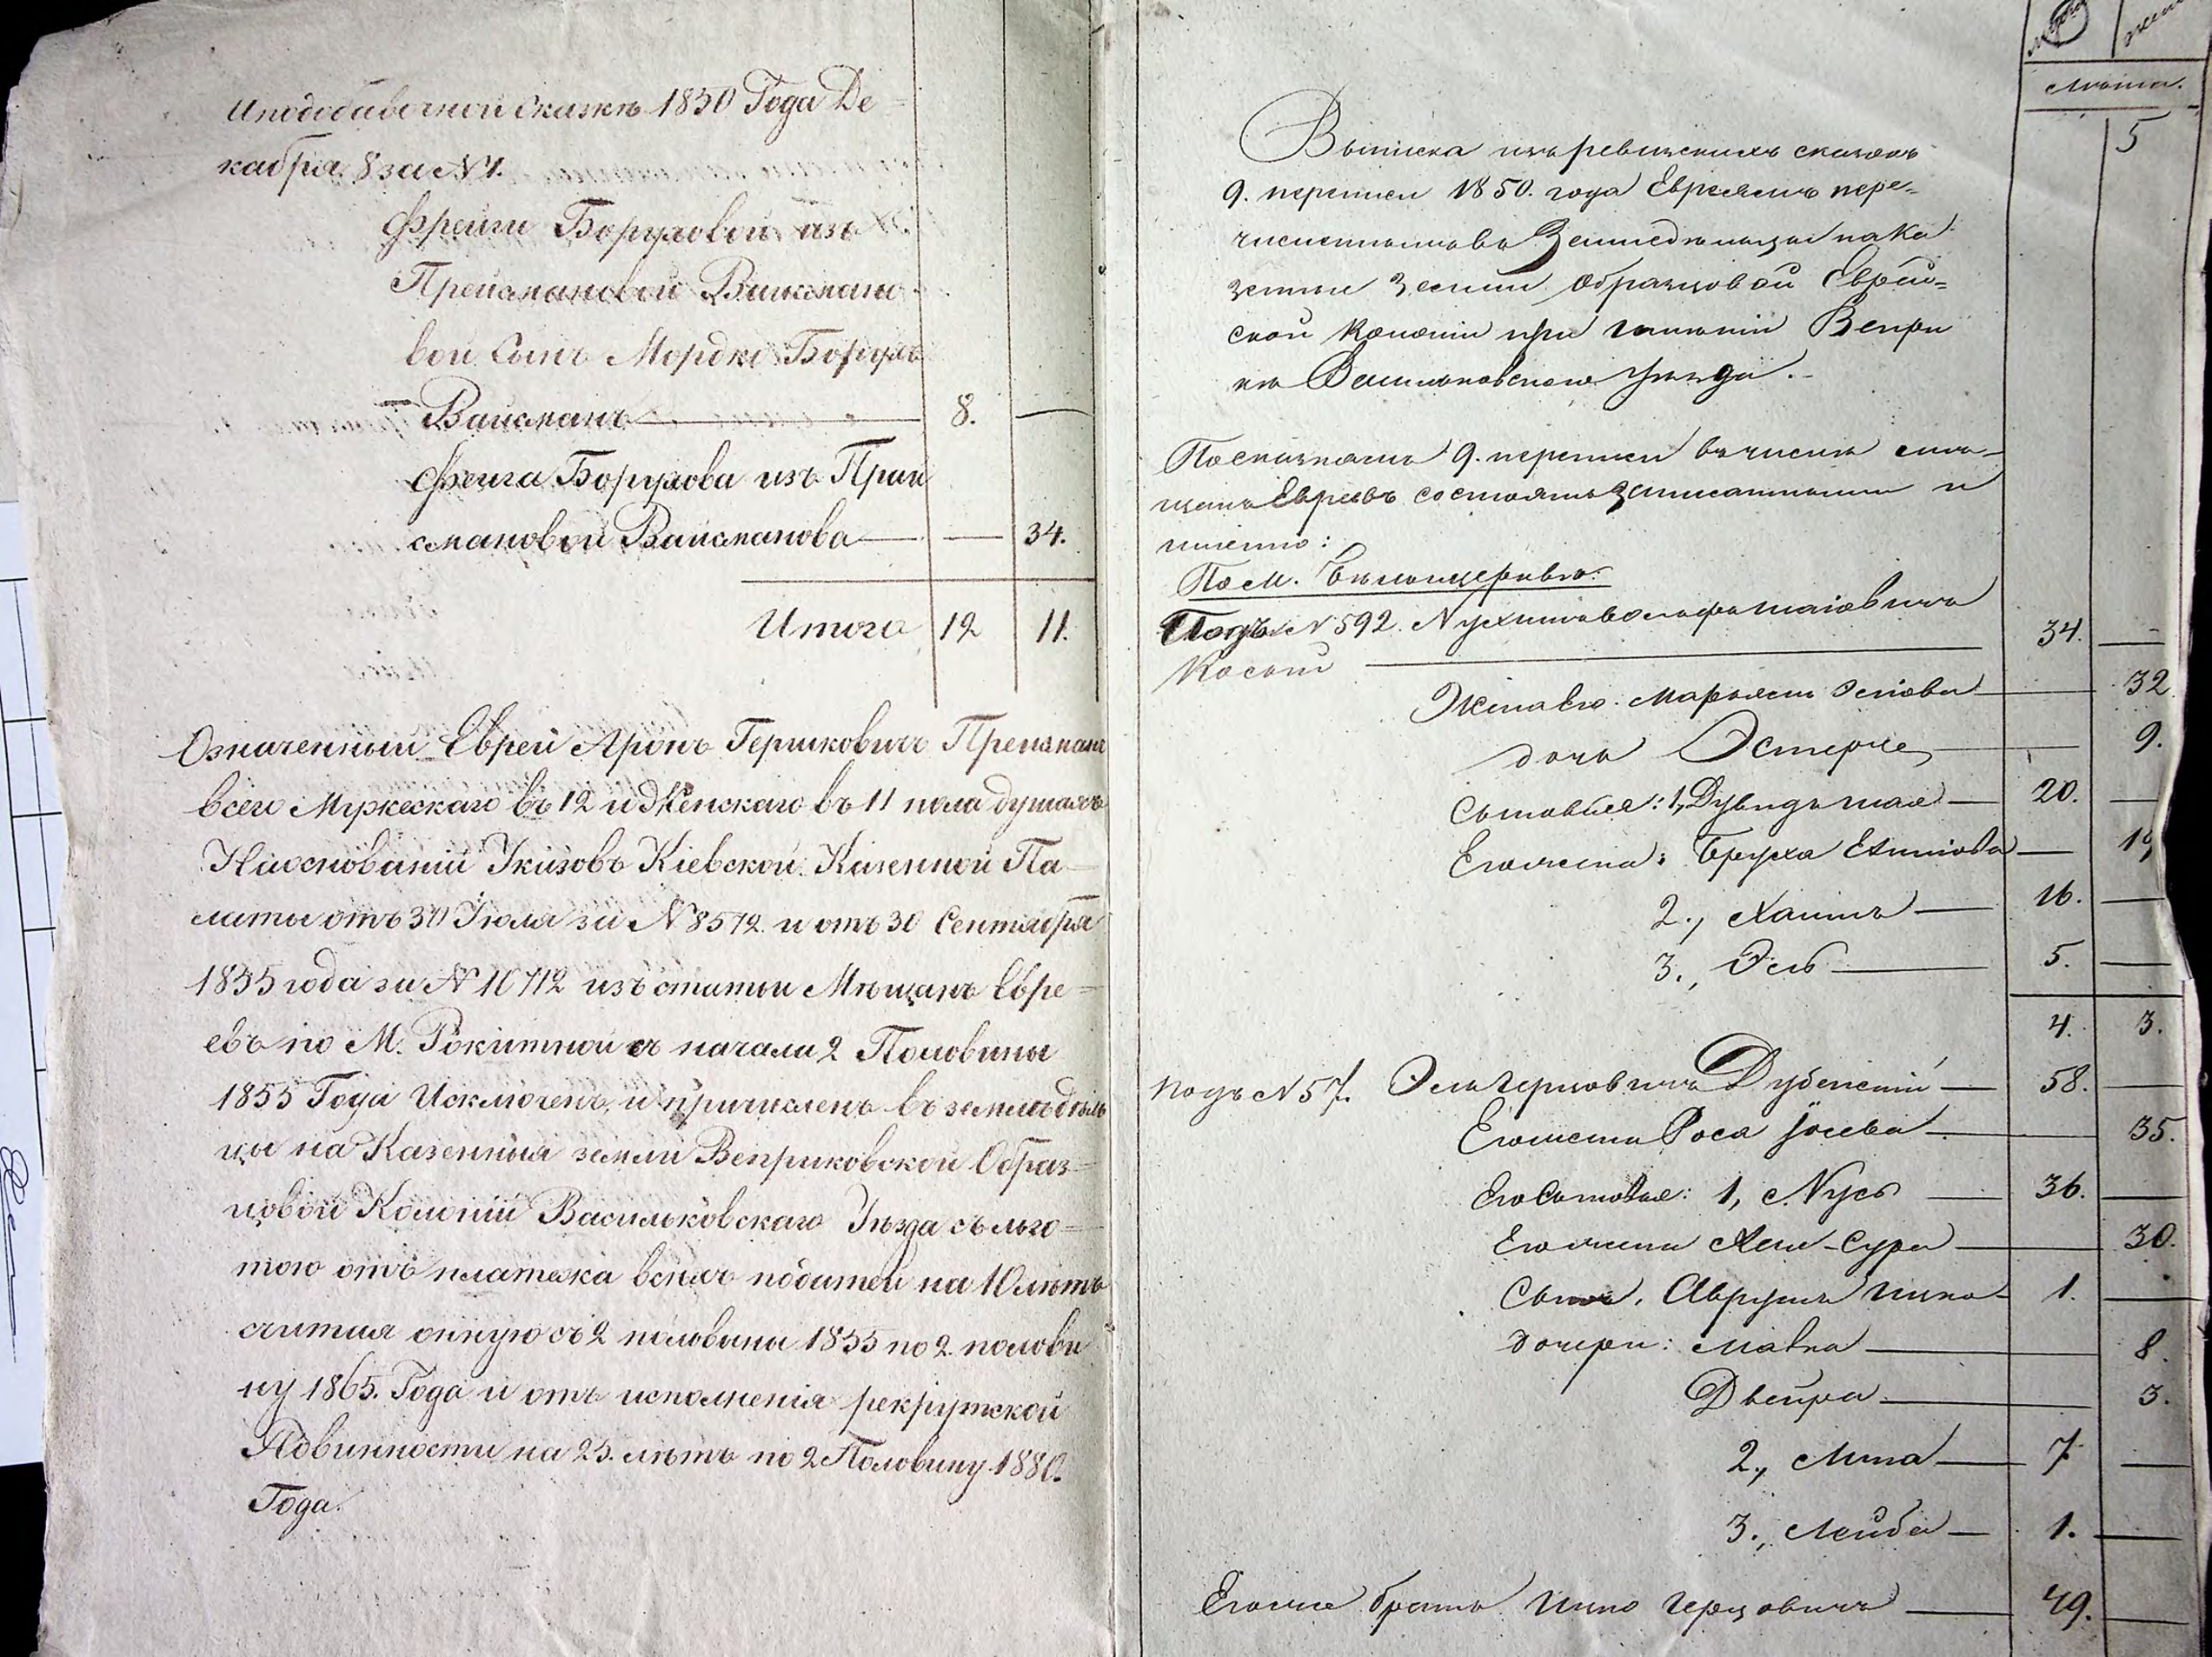 Иподобавочной Сказкѣ 1850 Года Де=
кабря 8 за №1.
Фрейги Боруховой изъ
Прейсмановой Вайсмано
вой Сынъ Мордко Борухъ
Вайсманъ — 8. —
Фейга Борухова изъ Прай
смановой Вайсманова — — 34.
Итого 12 11.
Означенный Еврей Аронъ Гершковичъ Прейсманъ
всего Мужескаго въ 12 и Женскаго въ 11 пола душахъ
На основаніи Указовъ Кіевской Казенной Па-
латы отъ 30 Іюля за № 8512 и отъ 30 Сентября
1855 года за № 10712 изъ статьи Мѣщанъ Евре=
евъ по М. Рокитной съ начала 2 Половины
1855 Года Исключенъ, и причисленъ въ земледѣль
цы на Казенныя земли Веприковской Образ=
цовой Колоніи Васильковскаго Уѣзда съ льго=
тою отъ платежа всѣхъ податей на 10 лѣтъ
считая оную съ 2 половины 1855 по 2 полови
ну 1865. Года и отъ исполненія рекрутской
Повинности на 25. лѣтъ по 2 Половину 1880.
Года.
лѣта.
5
Выписка изъ ревизскихъ сказокъ
9. переписи 1850. года Евреямъ пере=
численнымъ въ Земледѣльцы на Ка
зенныя Земли Образцовой Еврей=
ской Колоніи при имѣніи Вепри
кѣ Васильковскаго уѣзда.
По сказкамъ 9. переписи въ числѣ мѣ-
щанъ Евреевъ состоятъ записанными и
именно:
По М. Бѣлоцерковѣ:
Подъ № 592. Нухимъ Вольфъ Шаіовичъ
Косый — 34. —
Жена его Марьясъ Эсіова — 32.
дочь Эстеръ — 9.
Сыновья: 1, Дувидъ Шая — 20. —
Его жена: Бруха — 19.
2., Хаимъ — 16. —
3., Эль — 5. —
4. 3.
Подъ № 57. Эль Герцовичъ Дубенскій — 58. —
Его жена Роса Іосева — 35.
Его Сыновья: 1, Нусь — 36. —
Его жена Хая-Сура — 30.
Сынъ, Аврумъ Ицко — 1. —
дочери: Малка — 8.
Двейра — 3.
2., — 7. —
3., Лейба — 1. —
Его же братъ Ицко Герцовичъ — 49. —